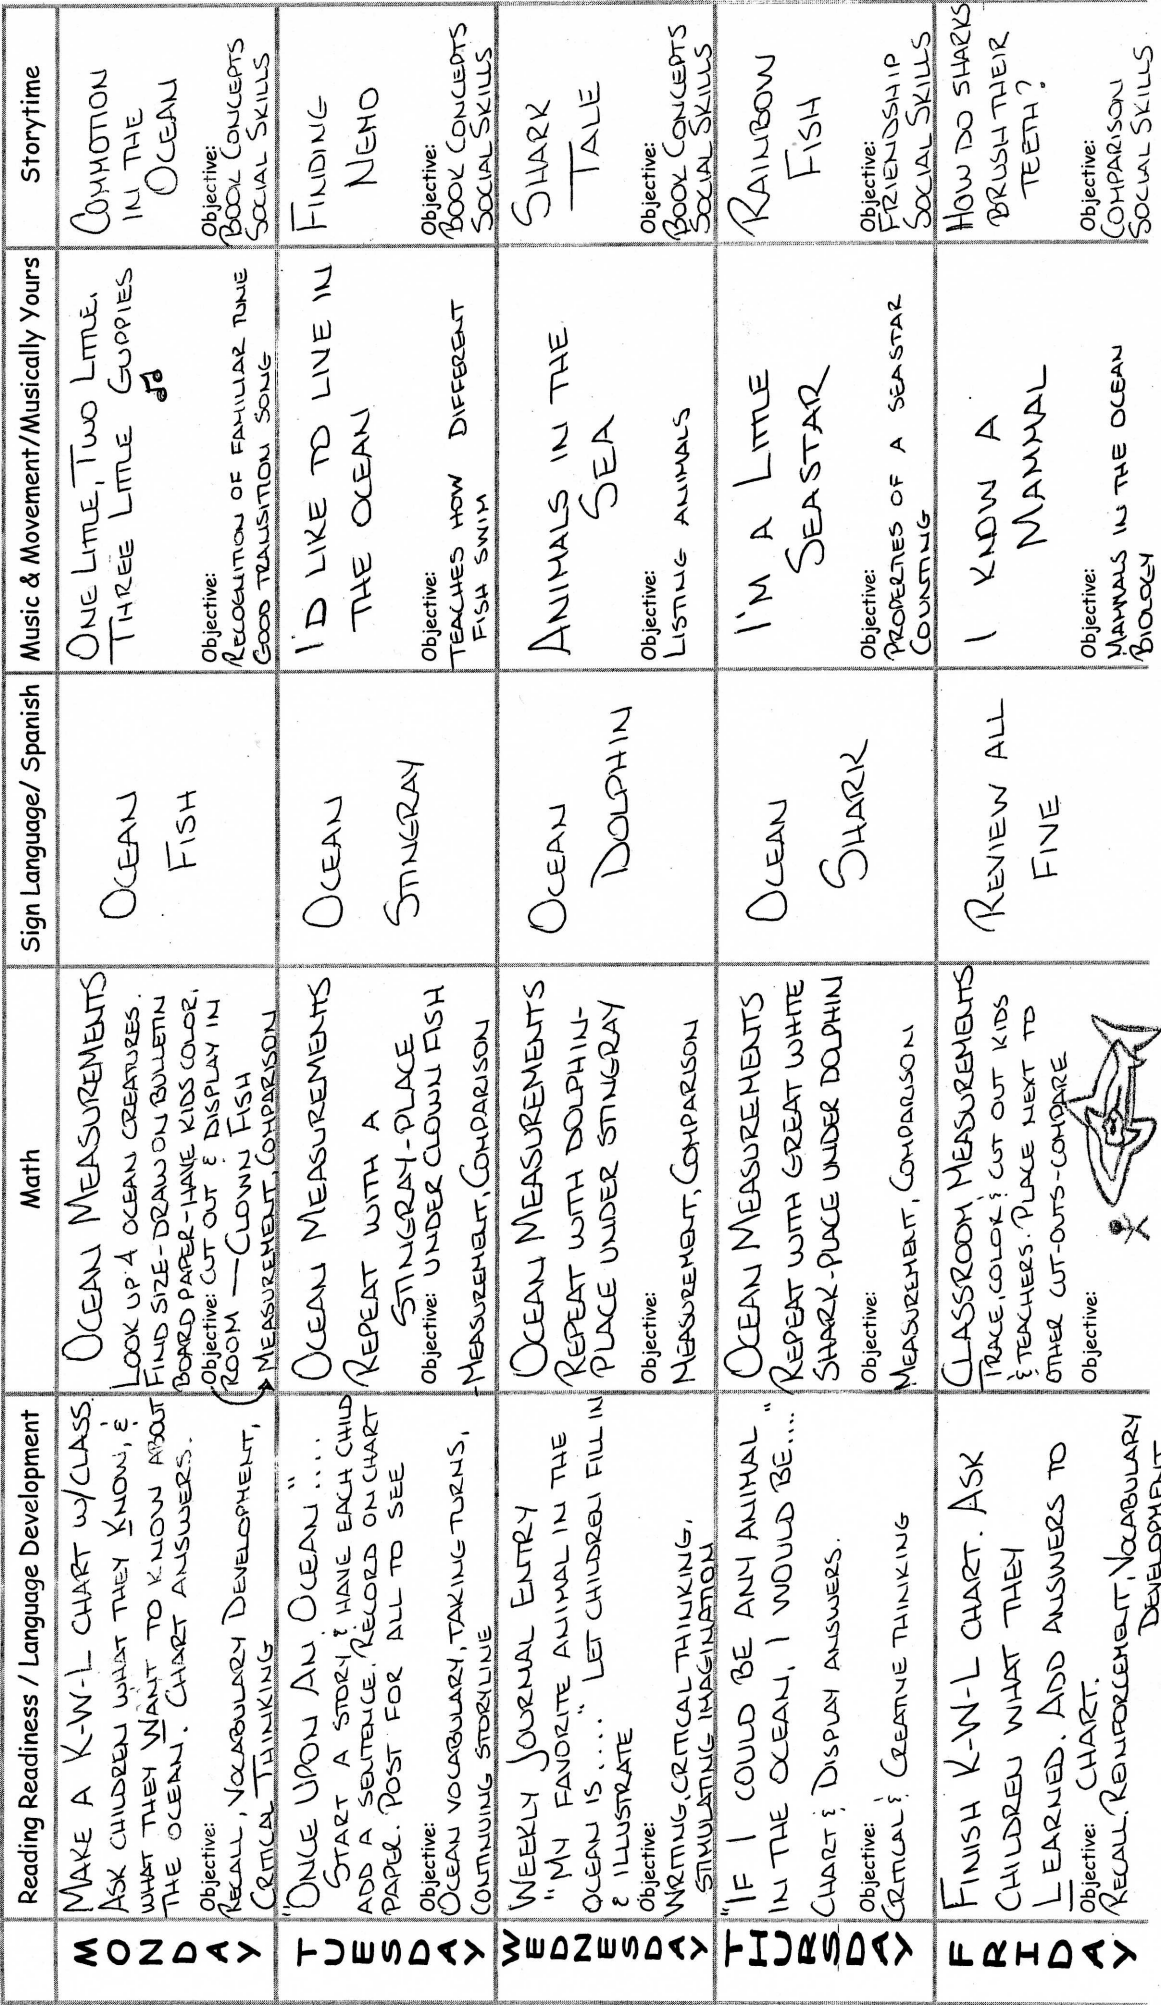 Reading Readiness / Language Development
Math
Sign Language/ Spanish
Music & Movement/Musically Yours
Storytime
MONDAY
MAKE A K-W-L CHART W/CLASS.
ASK CHILDREN WHAT THEY KNOW, &
WHAT THEY WANT TO KNOW ABOUT
THE OCEAN. CHART ANSWERS.
Objective:
RECALL, VOCABULARY DEVELOPMENT,
CRITICAL THINKING
OCEAN MEASUREMENTS
LOOK UP 4 OCEAN CREATURES.
FIND SIZE-DRAW ON BULLETIN
BOARD PAPER-HAVE KIDS COLOR,
Objective: CUT OUT & DISPLAY IN
ROOM — CLOWN FISH
MEASUREMENT, COMPARISON
OCEAN
FISH
ONE LITTLE, TWO LITTLE,
THREE LITTLE GUPPIES
Objective:
RECOGNITION OF FAMILIAR TUNE
GOOD TRANSITION SONG
COMMOTION
IN THE
OCEAN
Objective:
BOOK CONCEPTS
SOCIAL SKILLS
TUESDAY
"ONCE UPON AN OCEAN"....
START A STORY & HAVE EACH CHILD
ADD A SENTENCE. RECORD ON CHART
PAPER. POST FOR ALL TO SEE
Objective:
OCEAN VOCABULARY, TAKING TURNS,
CONTINUING STORYLINE
OCEAN MEASUREMENTS
REPEAT WITH A
STINGRAY-PLACE
Objective: UNDER CLOWN FISH
-MEASUREMENT, COMPARISON
OCEAN
STINGRAY
I'D LIKE TO LIVE IN
THE OCEAN
Objective:
TEACHES HOW DIFFERENT
FISH SWIM
FINDING
NEMO
Objective:
BOOK CONCEPTS
SOCIAL SKILLS
WEDNESDAY
WEEKLY JOURNAL ENTRY
"MY FAVORITE ANIMAL IN THE
OCEAN IS...." LET CHILDREN FILL IN
& ILLUSTRATE
Objective:
WRITING, CRITICAL THINKING,
STIMULATING IMAGINATION
OCEAN MEASUREMENTS
REPEAT WITH DOLPHIN-
PLACE UNDER STINGRAY
Objective:
MEASUREMENT, COMPARISON
OCEAN
DOLPHIN
ANIMALS IN THE
SEA
Objective:
LISTING ANIMALS
SHARK
TALE
Objective:
BOOK CONCEPTS
SOCIAL SKILLS
THURSDAY
"IF I COULD BE ANY ANIMAL
IN THE OCEAN, I WOULD BE...."
CHART & DISPLAY ANSWERS.
Objective:
CRITICAL & CREATIVE THINKING
OCEAN MEASUREMENTS
REPEAT WITH GREAT WHITE
SHARK-PLACE UNDER DOLPHIN
Objective:
MEASUREMENT, COMPARISON
OCEAN
SHARK
I'M A LITTLE
SEASTAR
Objective:
PROPERTIES OF A SEASTAR
COUNTING
RAINBOW
FISH
Objective:
FRIENDSHIP
SOCIAL SKILLS
FRIDAY
FINISH K-W-L CHART. ASK
CHILDREN WHAT THEY
LEARNED. ADD ANSWERS TO
Objective: CHART.
RECALL, REINFORCEMENT, VOCABULARY
DEVELOPMENT
CLASSROOM MEASUREMENTS
TRACE, COLOR & CUT OUT KIDS
& TEACHERS. PLACE NEXT TO
OTHER CUT-OUTS-COMPARE
Objective:
REVIEW ALL
FIVE
I KNOW A
MAMMAL
Objective:
MAMMALS IN THE OCEAN
BIOLOGY
HOW DO SHARKS
BRUSH THEIR
TEETH?
Objective:
COMPARISON
SOCIAL SKILLS